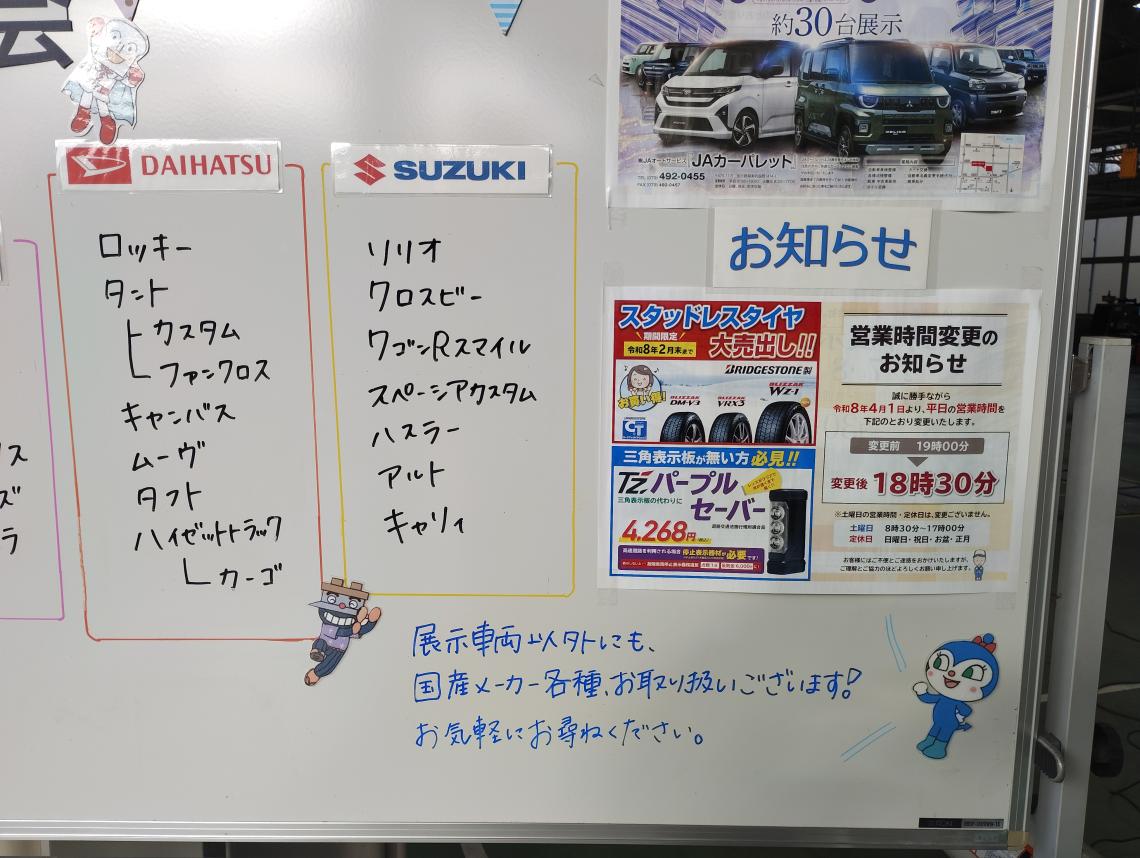 会
DAIHATSU
ロッキー
タント
カスタム
ファンクロス
キャンバス
ムーヴ
タフト
ハイゼットトラック
カーゴ
SUZUKI
ソリオ
クロスビー
ワゴンRスマイル
スペーシアカスタム
ハスラー
アルト
キャリィ
展示車両以外にも、
国産メーカー各種、お取り扱いございます!
お気軽にお尋ねください。
約30台展示
㈱JAオートサービス JAカーパレット
TEL(079) 492-0455
FAX(079) 492-0457
お知らせ
スタッドレスタイヤ
期間限定
令和8年2月末まで
大売出し!!
BRIDGESTONE製
お買い得!
BLIZZAK DM-V3
BLIZZAK VRX3
BLIZZAK WZ-1
CT
三角表示板が無い方必見!!
パープル
セーバー
三角表示板の代わりに
4,268円
高速道路を利用される場合 停止表示器材が必要です!
営業時間変更の
お知らせ
誠に勝手ながら
令和8年4月1日より、平日の営業時間を
下記のとおり変更いたします。
変更前 19時00分
変更後 18時30分
※土曜日の営業時間・定休日は、変更ございません。
土曜日 8時30分~17時00分
定休日 日曜日・祝日・お盆・正月
お客様にはご不便とご迷惑をおかけいたしますが、
ご理解とご協力のほどよろしくお願い申し上げます。